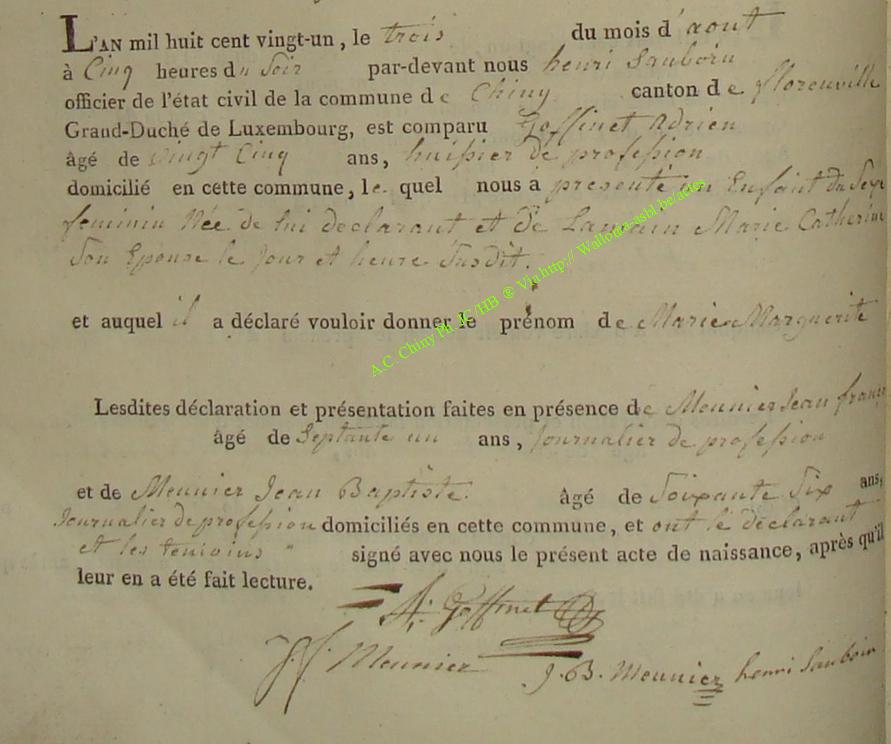 L'AN mil huit cent vingt-un, le trois du mois d'aout
à Cinq heures du Soir par-devant nous henri Sauboin
officier de l'état civil de la commune de Chiny canton de florenville
Grand-Duché de Luxembourg, est comparu Goffinet Adrien
âgé de vingt Cinq ans, huissier de profession
domicilié en cette commune, le quel nous a presenté un Enfant du Sexe
feminin Née de lui declarant et de Marie Catherine
Son Epouse le Jour et heure Susdit.
et auquel il a déclaré vouloir donner le prénom de Marie Marguerite
Lesdites déclaration et présentation faites en présence de Meunier Jean
âgé de Septante un ans, Journalier de profession
et de Meunier Jean Baptiste. âgé de Soixante Six ans,
Journalier de profession domiciliés en cette commune, et ont le déclarant
et les temoins " signé avec nous le présent acte de naissance, après qu'il
leur en a été fait lecture.
A: Goffinet
J f Meunier
J. B. Meunier henri Sauboin
A.C. Chiny Ph. JG/HB @ Via http:// Wallonia-asbl.be/actes